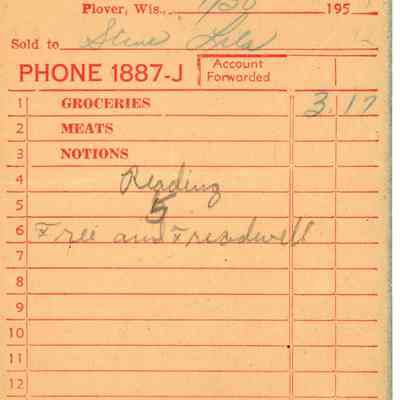 Plover, Wis., 1/20 195
Sold to Steve Lila
PHONE 1887-J Account Forwarded
1 GROCERIES 3.17
2 MEATS
3 NOTIONS
4 Reading
5 5
6 Free and Treadwell
7
8
9
10
11
12